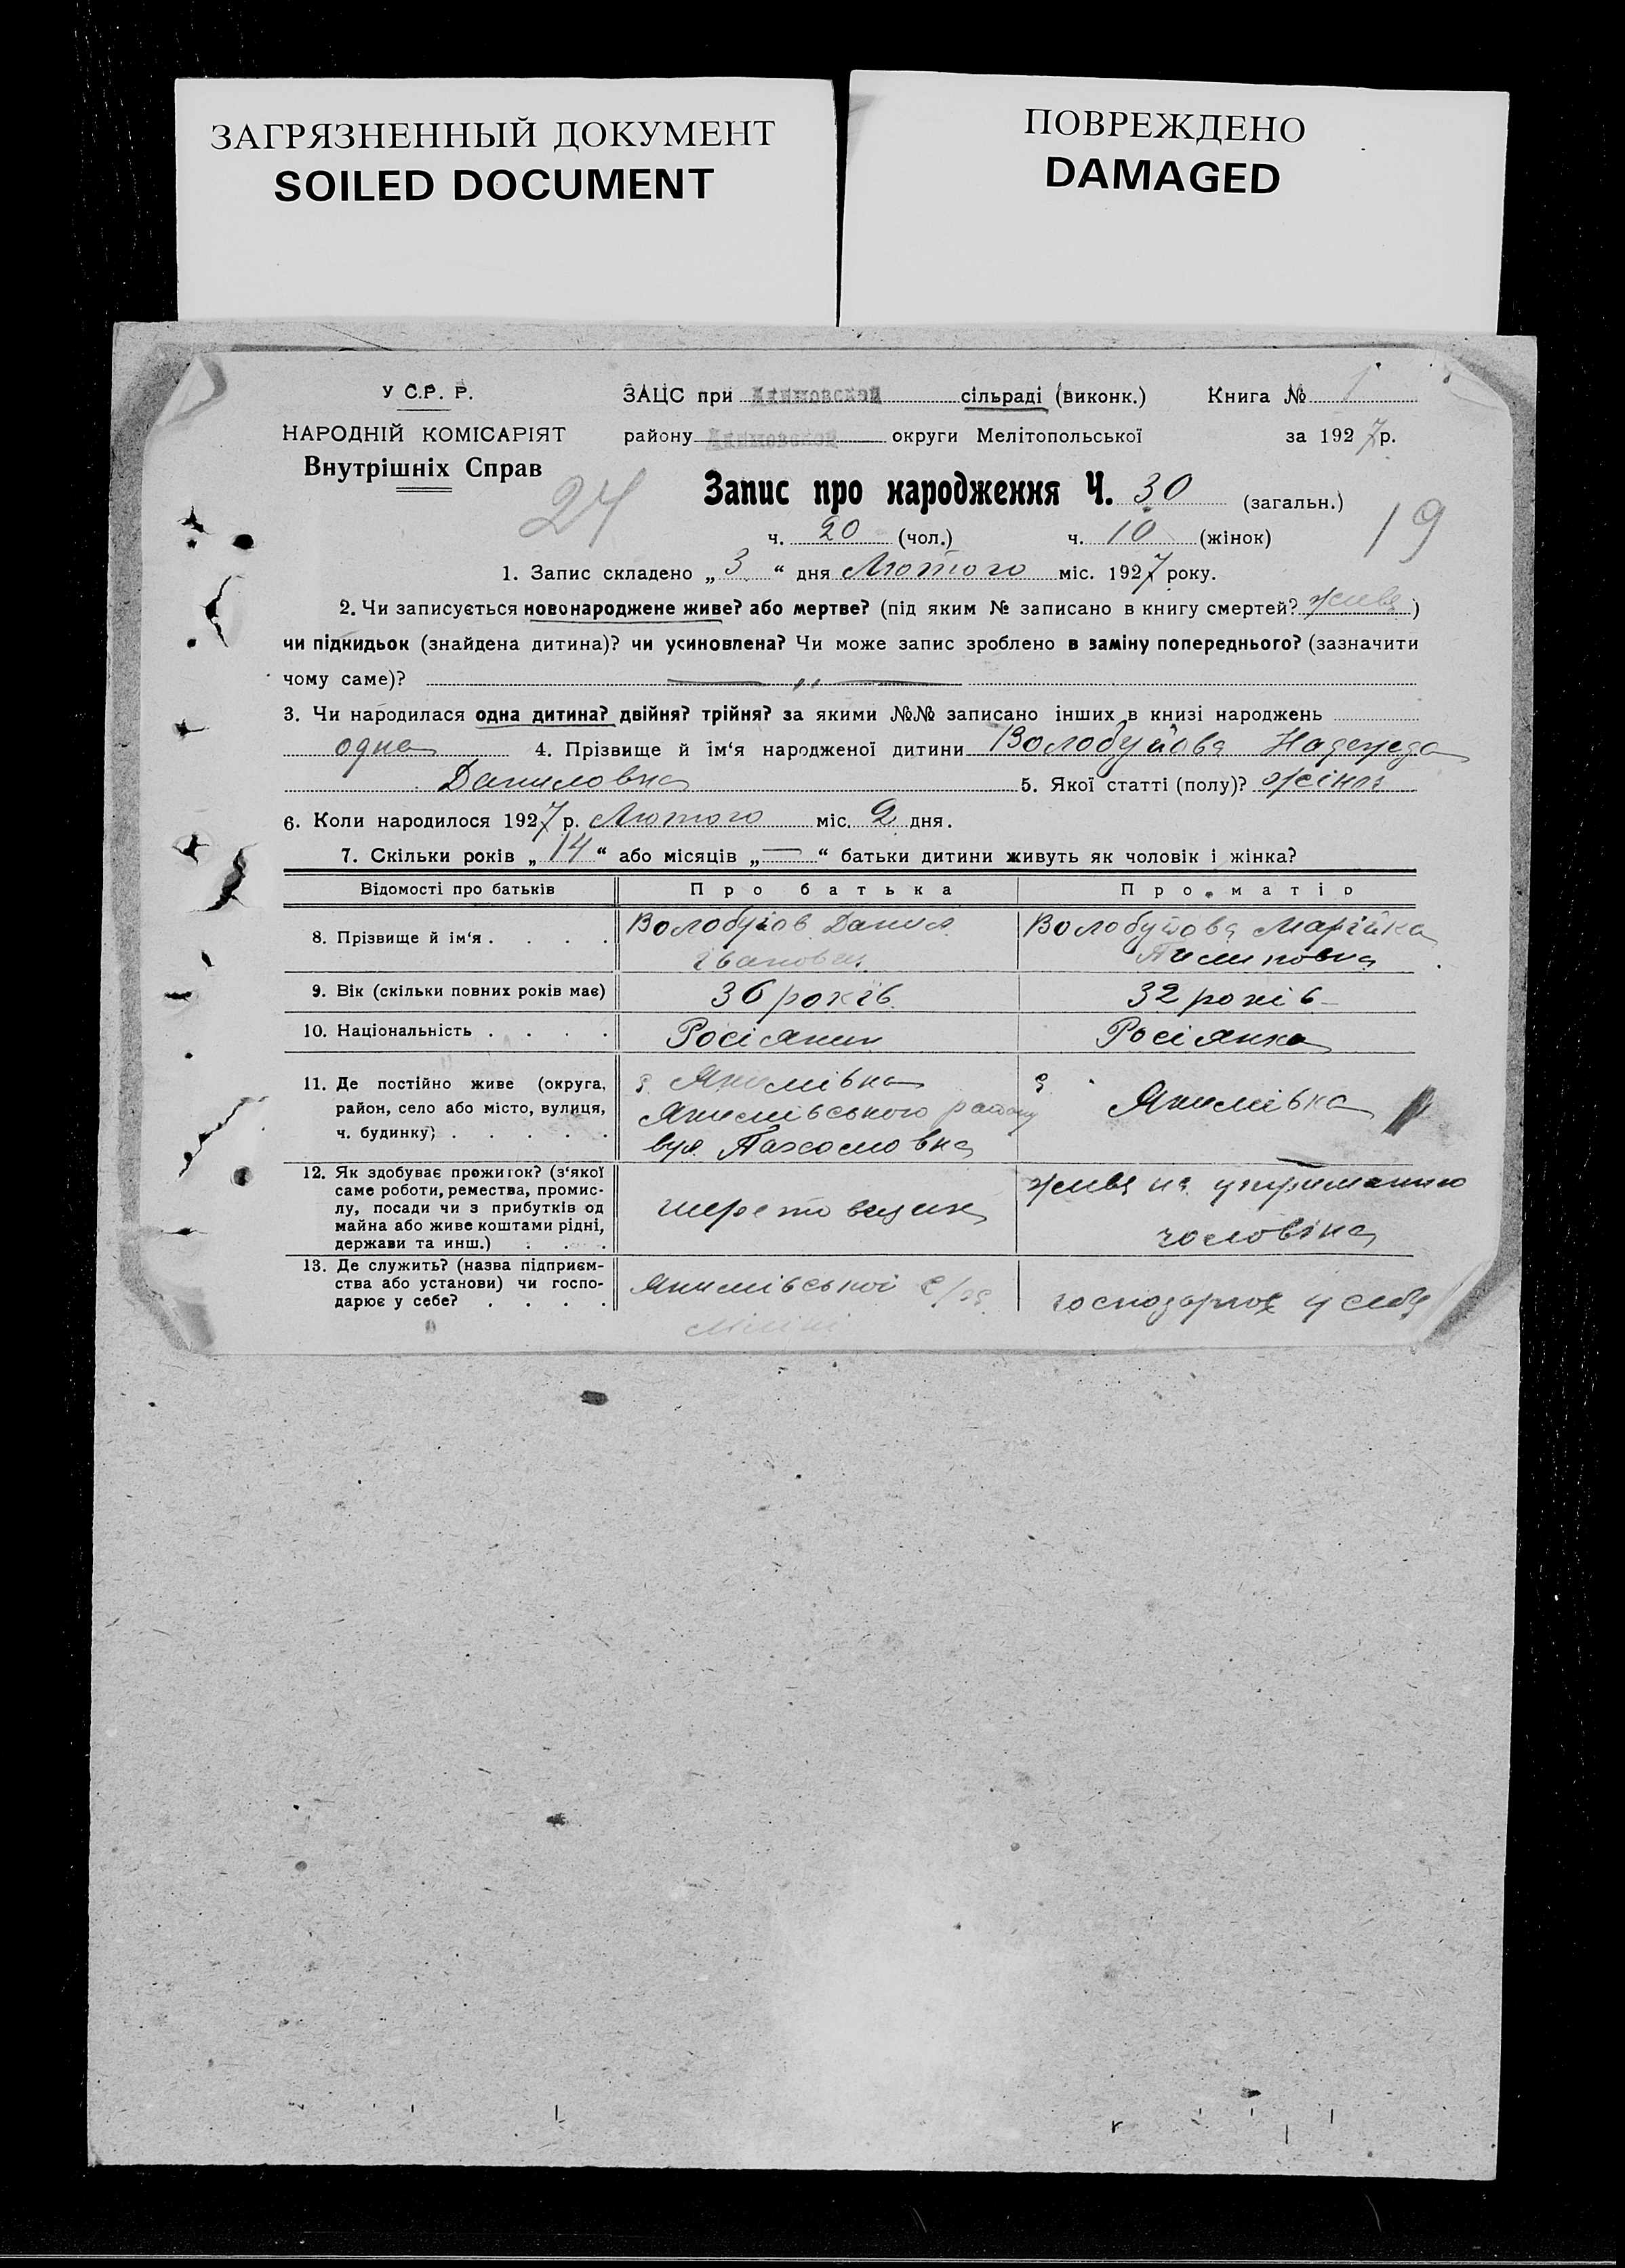 ЗАГРЯЗНЕННЫЙ ДОКУМЕНТ
SOILED DOCUMENT
ПОВРЕЖДЕНО
DAMAGED
У С.Р. Р.
НАРОДНІЙ КОМІСАРІЯТ
Внутрішніх Справ
ЗАЦС при сільраді (виконк.) Книга № 1
району округи Мелітопольської за 1927 р.
24
Запис про народження Ч. 30 (загальн.)
19
ч. 20 (чол.) ч. 10 (жінок)
1. Запис складено „ 3 “ дня Лютого міс. 1927 року.
2. Чи записується новонароджене живе? або мертве? (під яким № записано в книгу смертей? живе )
чи підкидьок (знайдена дитина)? чи усиновлена? Чи може запис зроблено в заміну попереднього? (зазначити
чому саме)? — „ —
3. Чи народилася одна дитина? двійня? трійня? за якими №№ записано інших в книзі народжень
одна 4. Прізвище й ім‘я народженої дитини Волобуйова Надежда
Даниловна 5. Якої статті (полу)? жіноч
6. Коли народилося 1927 р. Лютого міс. 2 дня.
7. Скільки років „ 14 “ або місяців „ — “ батьки дитини живуть як чоловік і жінка?
Відомості про батьків Про батька Про матір
8. Прізвище й ім‘я . . . . Волобуйов Данил Волобуйова Марійка
Іванович Пилиповна
9. Вік (скільки повних років має) 36 років 32 років
10. Національність . . . . Росіянин Росіянка
11. Де постійно живе (округа, с. Якимівка с. Якимівка
район, село або місто, вулиця, Якимівського району
ч. будинку) . . . . . вул. Пахомовка
12. Як здобуває прожиток? (з‘якої живе на утриманню
саме роботи, ремества, промис-
лу, посади чи з прибутків од чоловіка
майна або живе коштами рідні,
держави та инш.) . . .
13. Де служить? (назва підприєм-
ства або установи) чи госпо- Якимівської господарює у себе
дарює у себе? . . . .